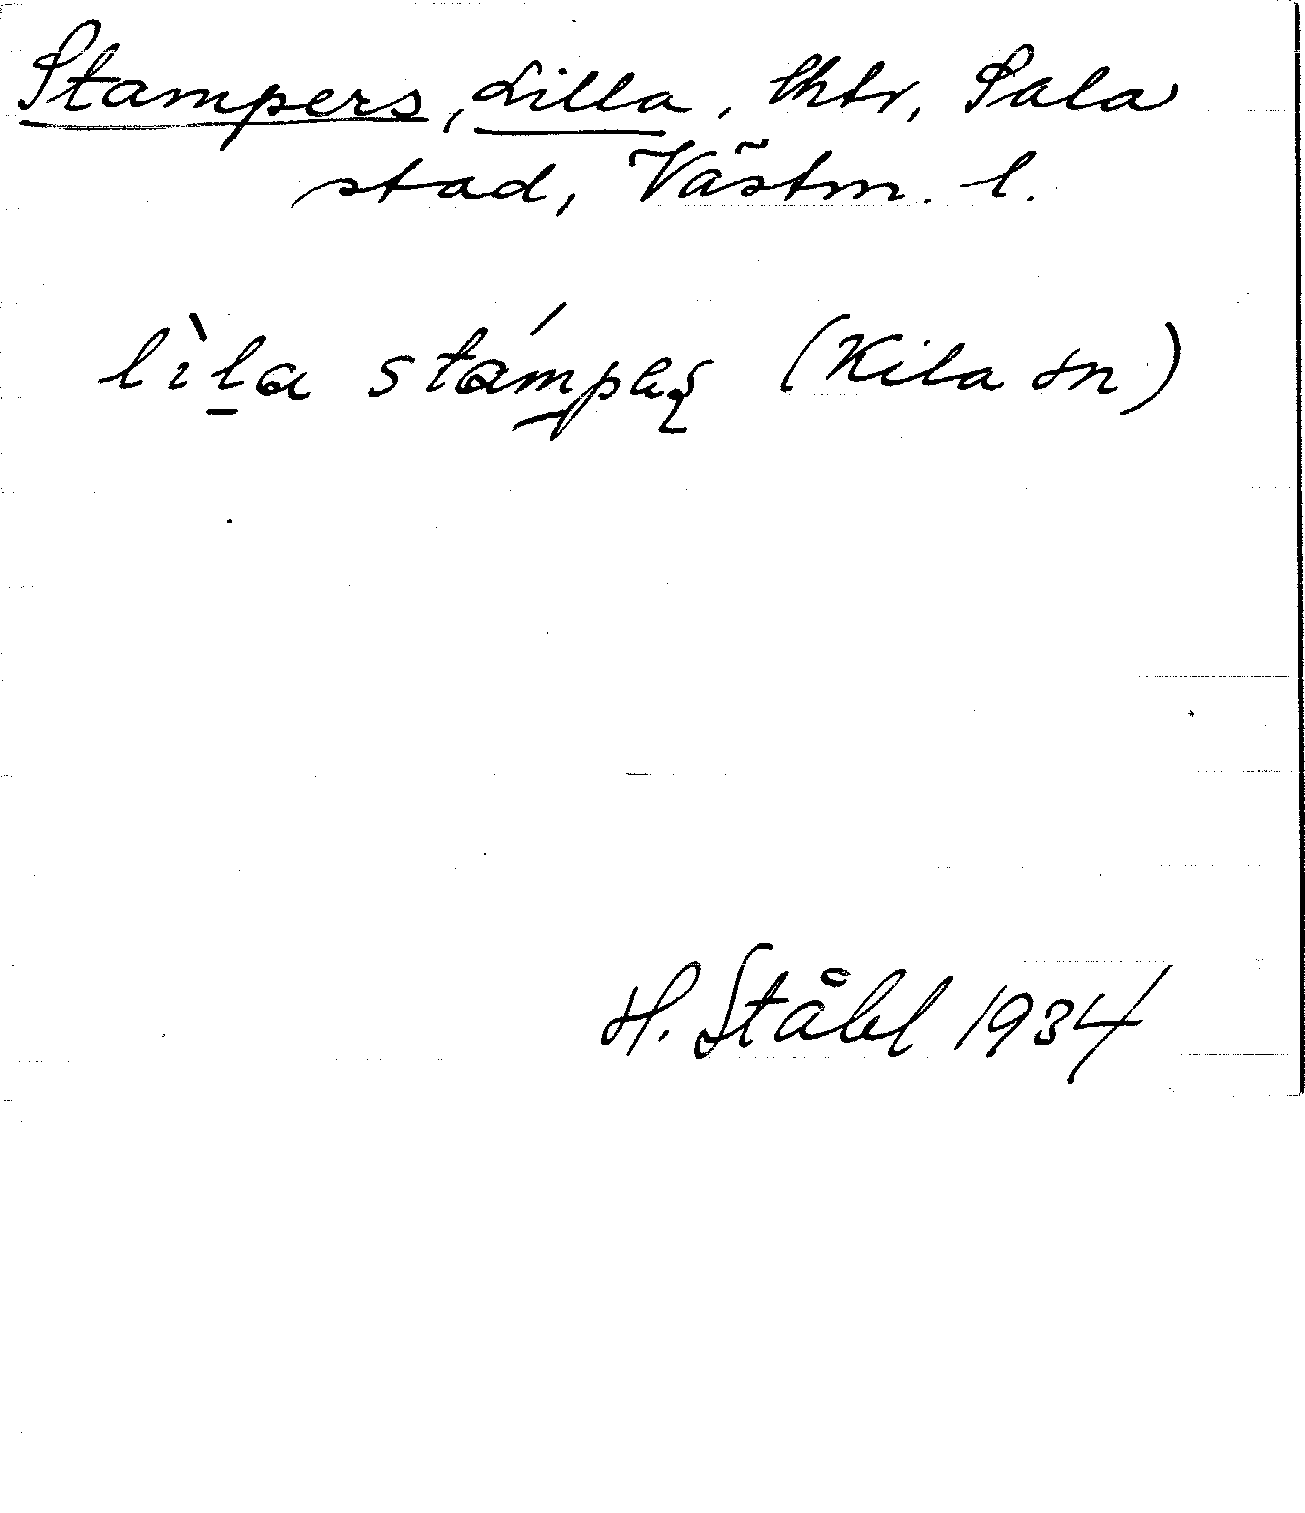 Stampers, Lilla, lhtr, Sala
stad, Västm. l.
lìla stámpas̩ (Kila sn)
H. Ståhl 1934